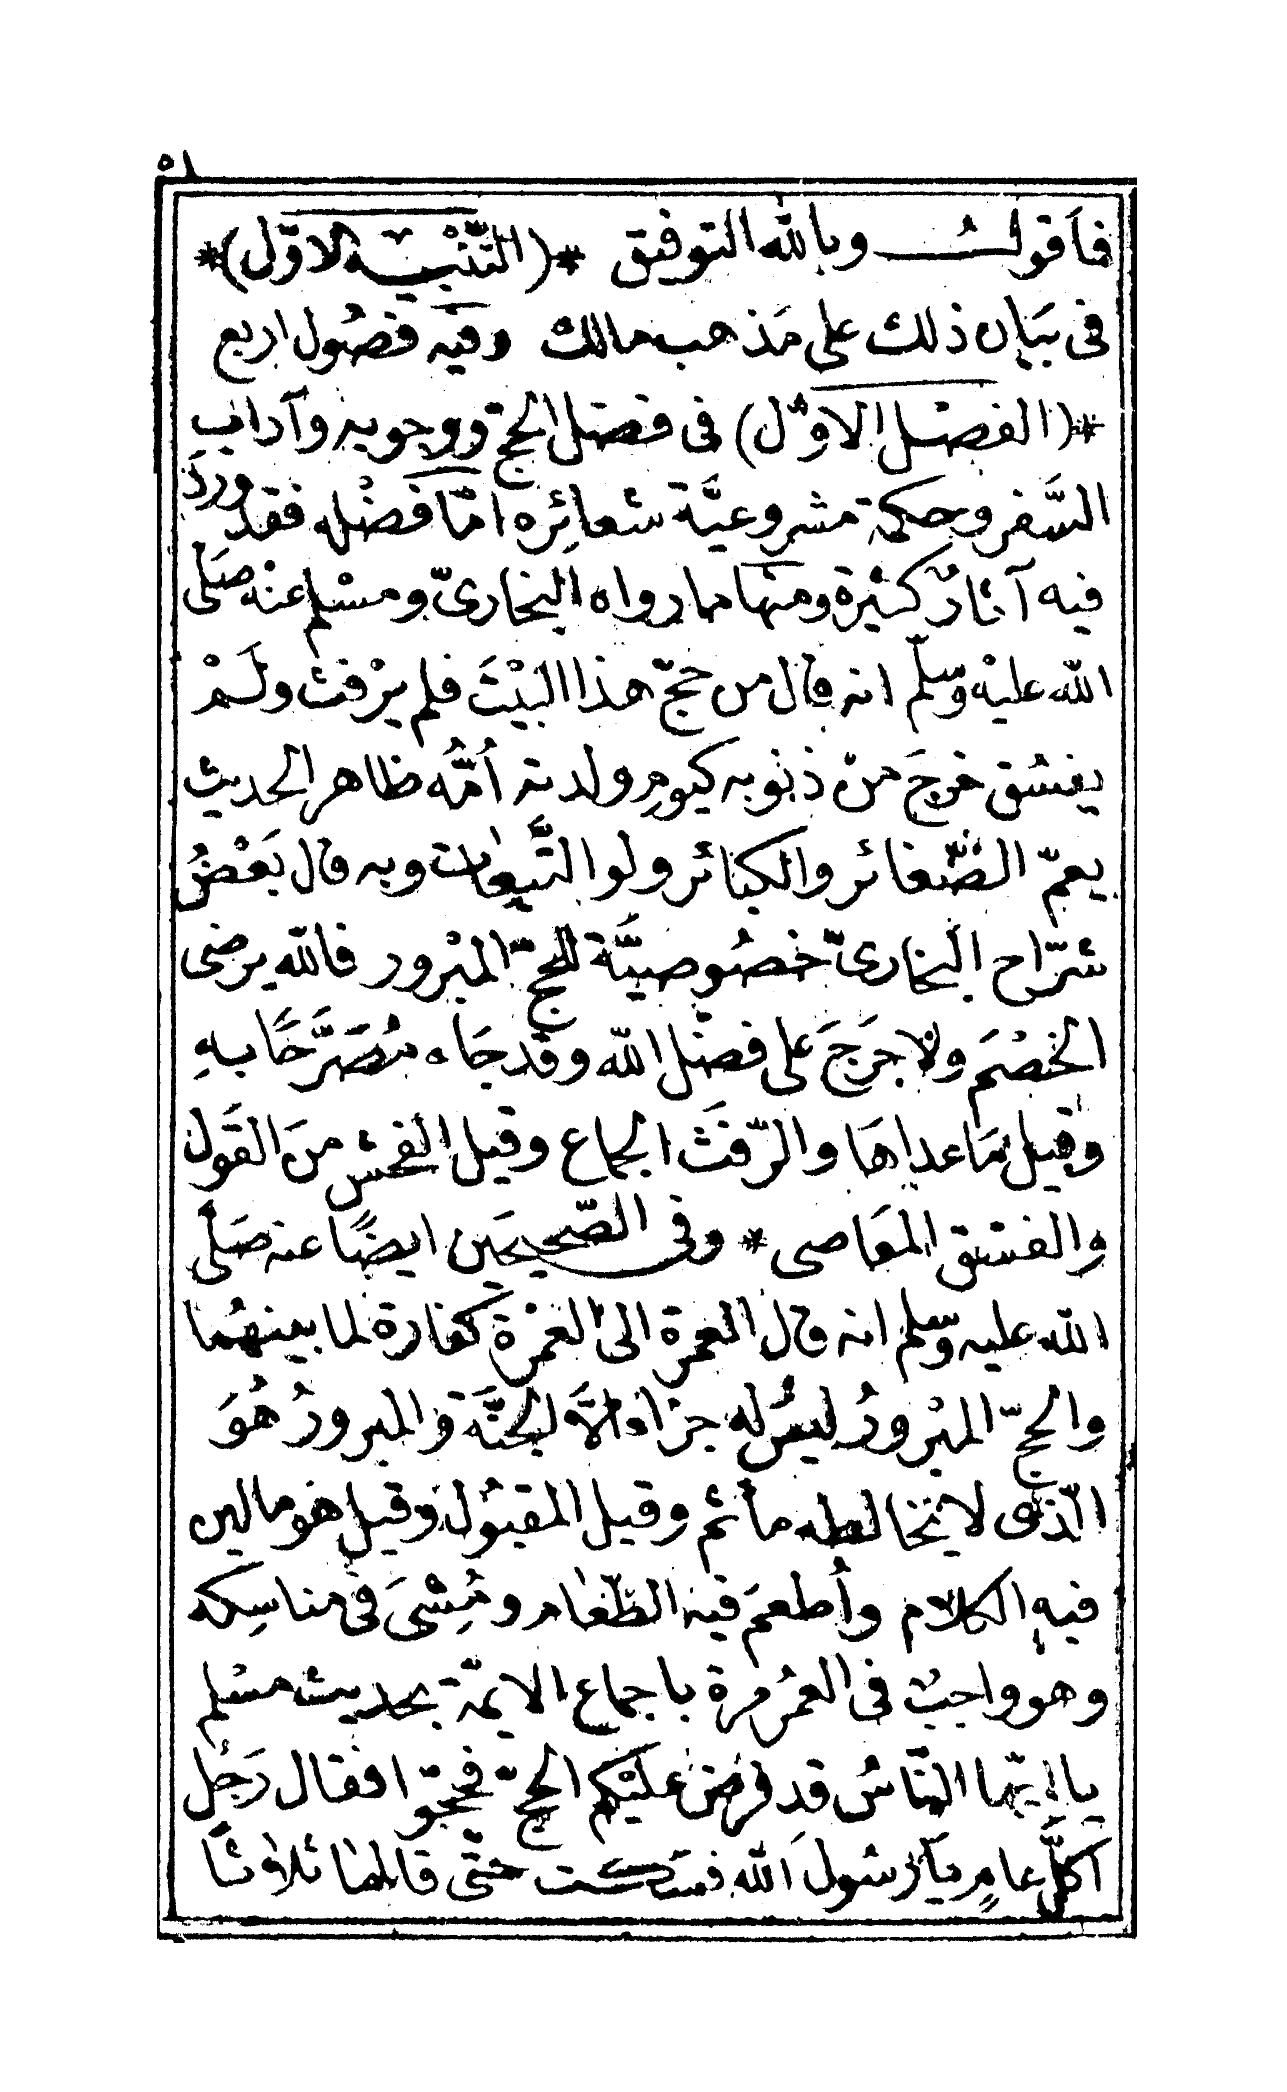 ٥١
فأقولُ وبالله التوفيق *(التّنْبيه الاوّل)*
فى بَيَان ذلك على مَذهب مالك وفيه فصُول اربع
*(الفصْل الاوّل) فى فضل الحجّ ووجوبه وآداب
السَّفر وحكمة مشروعيَّة شعائِره امّا فَضْله فقد وردَ
فيه آثارٌ كثيْرة ومنْها ما رواه البخارىّ ومسْلم عنْه صَلى
الله عليْه وسّلم انه قال من حجّ هذا البَيْتَ فلم يرْفث ولَمْ
يفسُق خرجَ منْ ذنوبه كيومِ ولدته اُمُّه ظاهر الحديث
يعمّ الصَّغائر والكبائر ولو التَّبِعات وبه قال بَعْضُ
شرّاح البخارىّ خصُوصيَّة للحجّ المبْرور فالله يرضى
الخصْمَ ولا حرَجَ على فضْل الله وقد جَاء مُصَرَّحًا بهِ
وقيل مَا عداهَا والرّفَثَ الجماع وقيل الفحْش منَ القَول
والفسْق المعَاصى * وفى الصّحيحَين ايضًا عنه صَلّى
الله عليه وسلم انه قال العمرة الى العمْرة كفارة لما بينهُما
والحجّ المبْرورُ ليسْ له جزاء الاَّ الجنَّة والمبرورُ هُوَ
الّذى لا يخالطه مأثم وقيل المقبُول وقيل هو ما لين
فيه الكلام واُطعمَ فيه الطّعَام ومُشىَ فى مناسِكه
وهو واجبٌ فى العمُر مرة باجماع الايمّة بحديث مسْلم
يا ايّها النّاسُ قد فرض عليْكم الحجّ فحجّوا فقال رَجُل
اكلَّ عامٍ يَا رَسُولَ الله فسكت حتّى قالهَا ثلاثًا